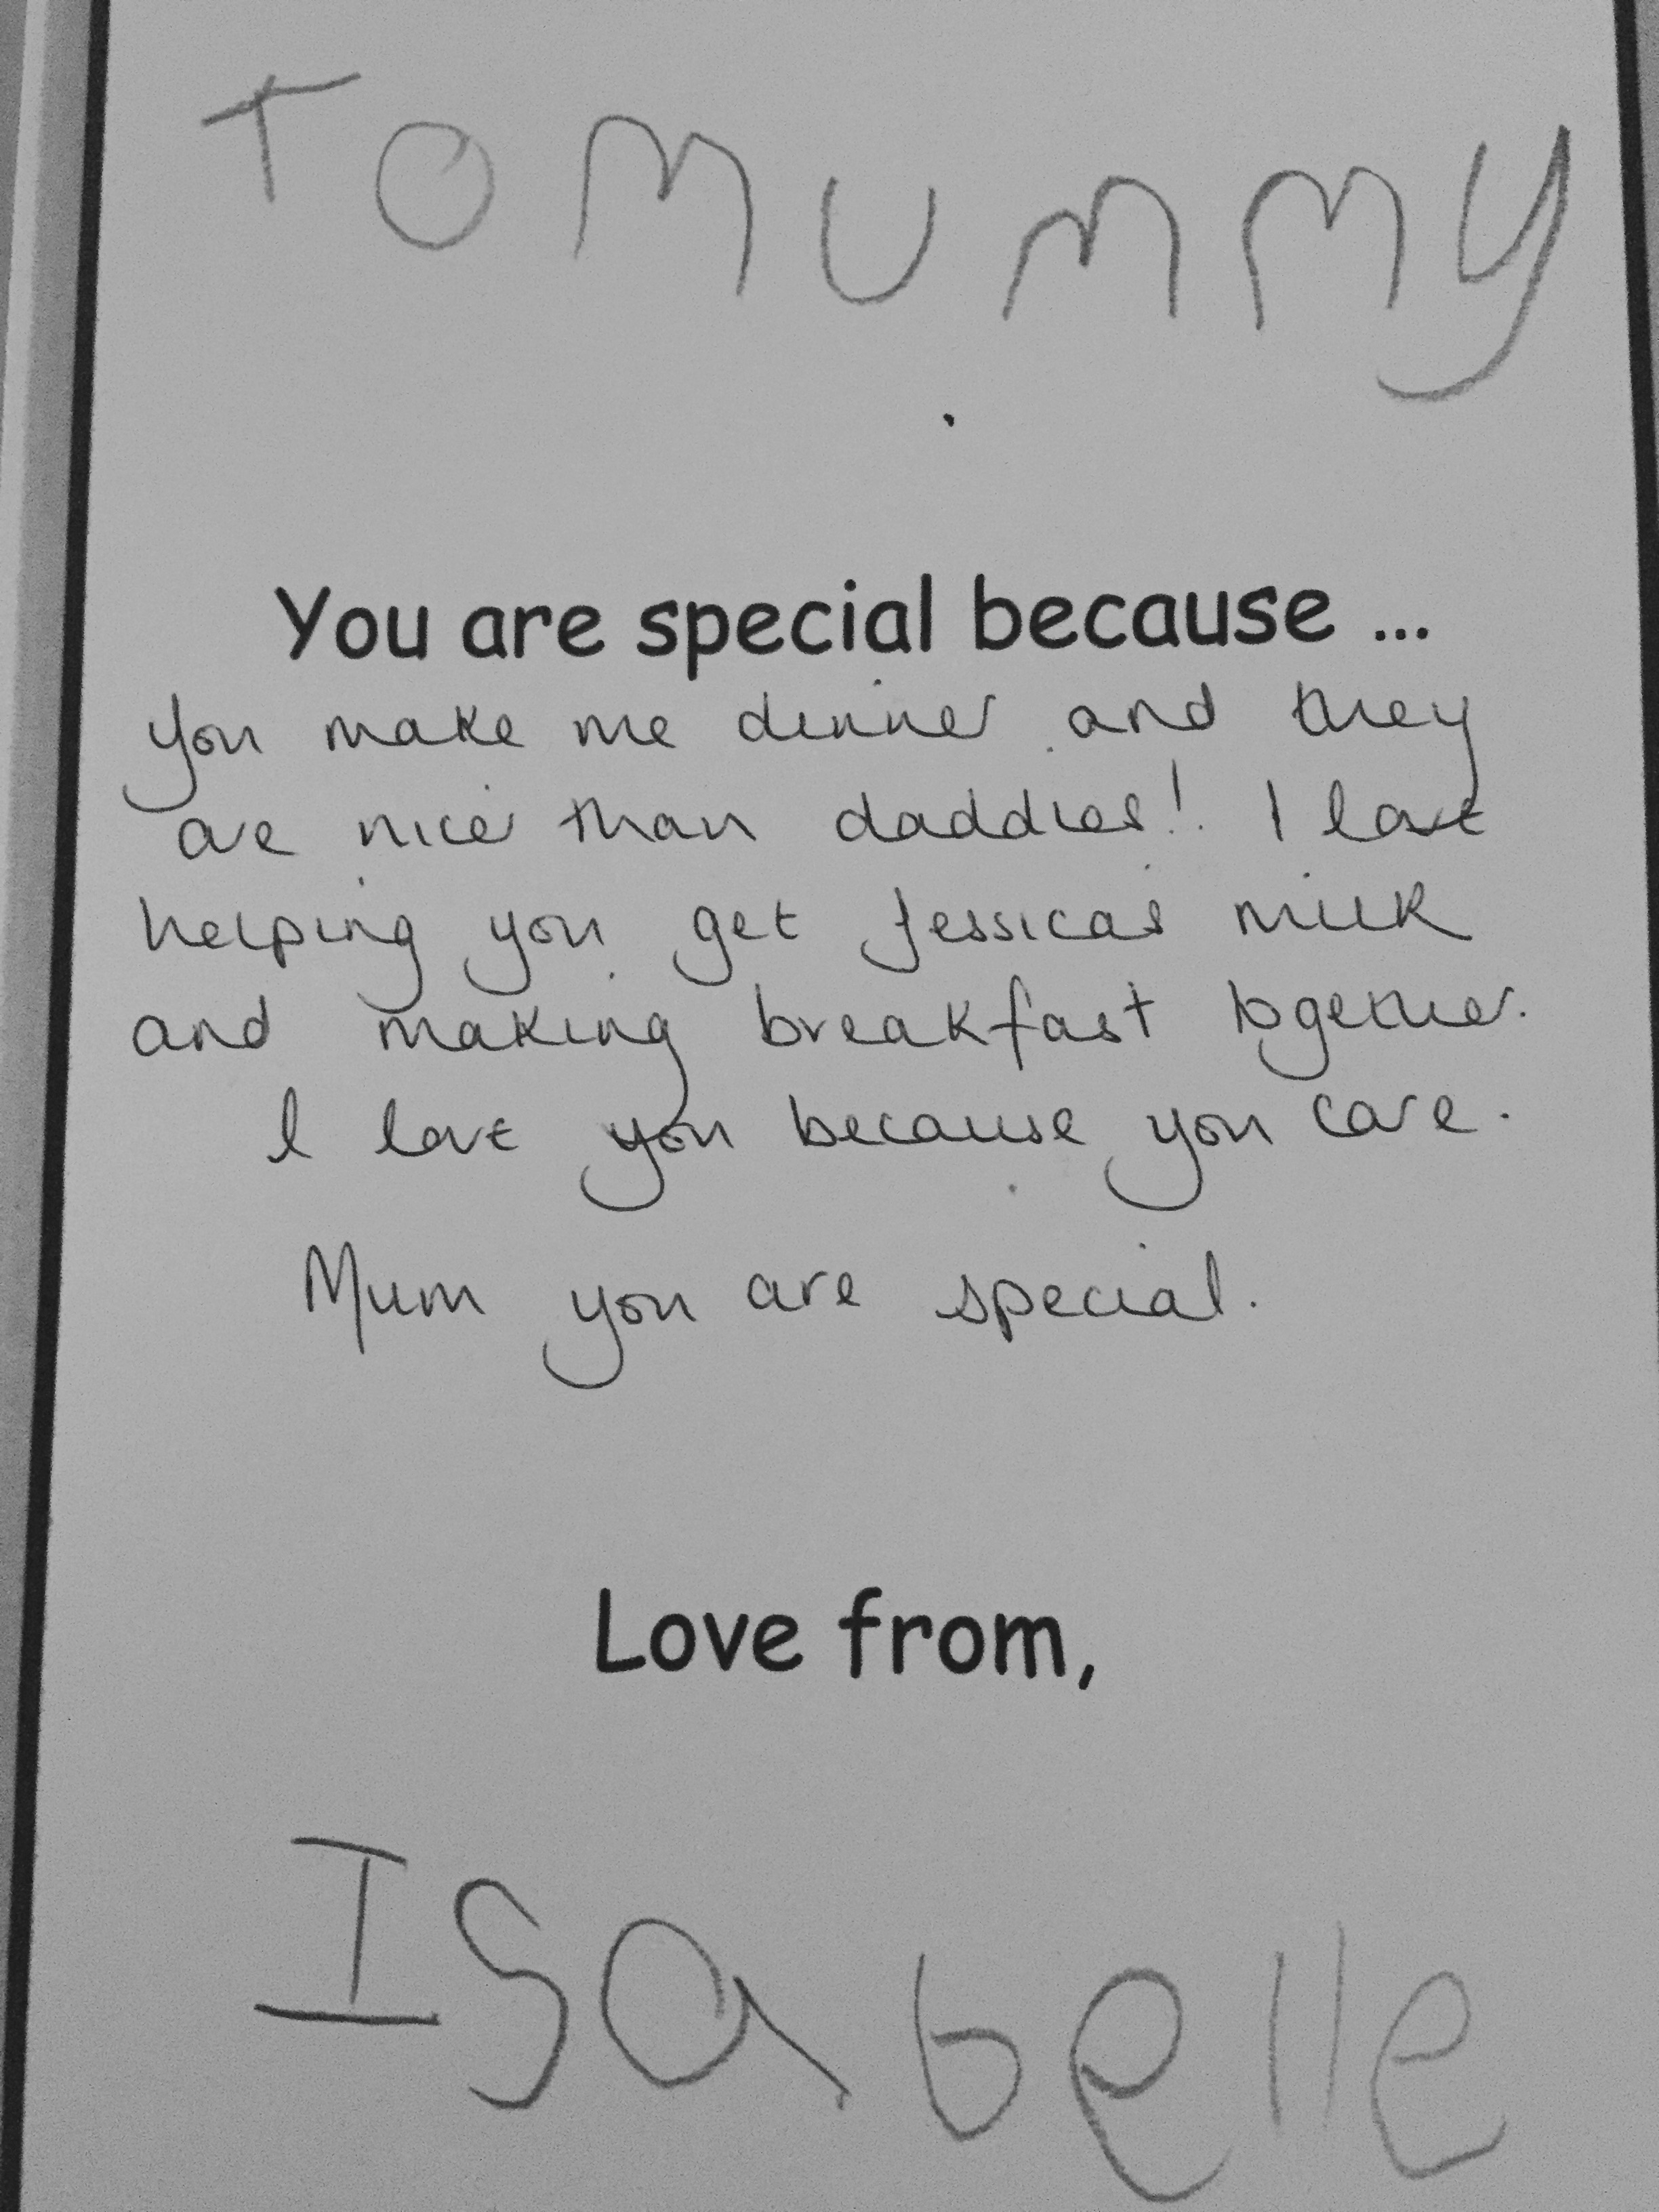 To Mummy
You are special because ...
you make me dinner and they
are nicer than daddies! I love
helping you get Jessicas milk
and making breakfast together.
I love you because you care.
Mum you are special.
Love from,
Isabelle